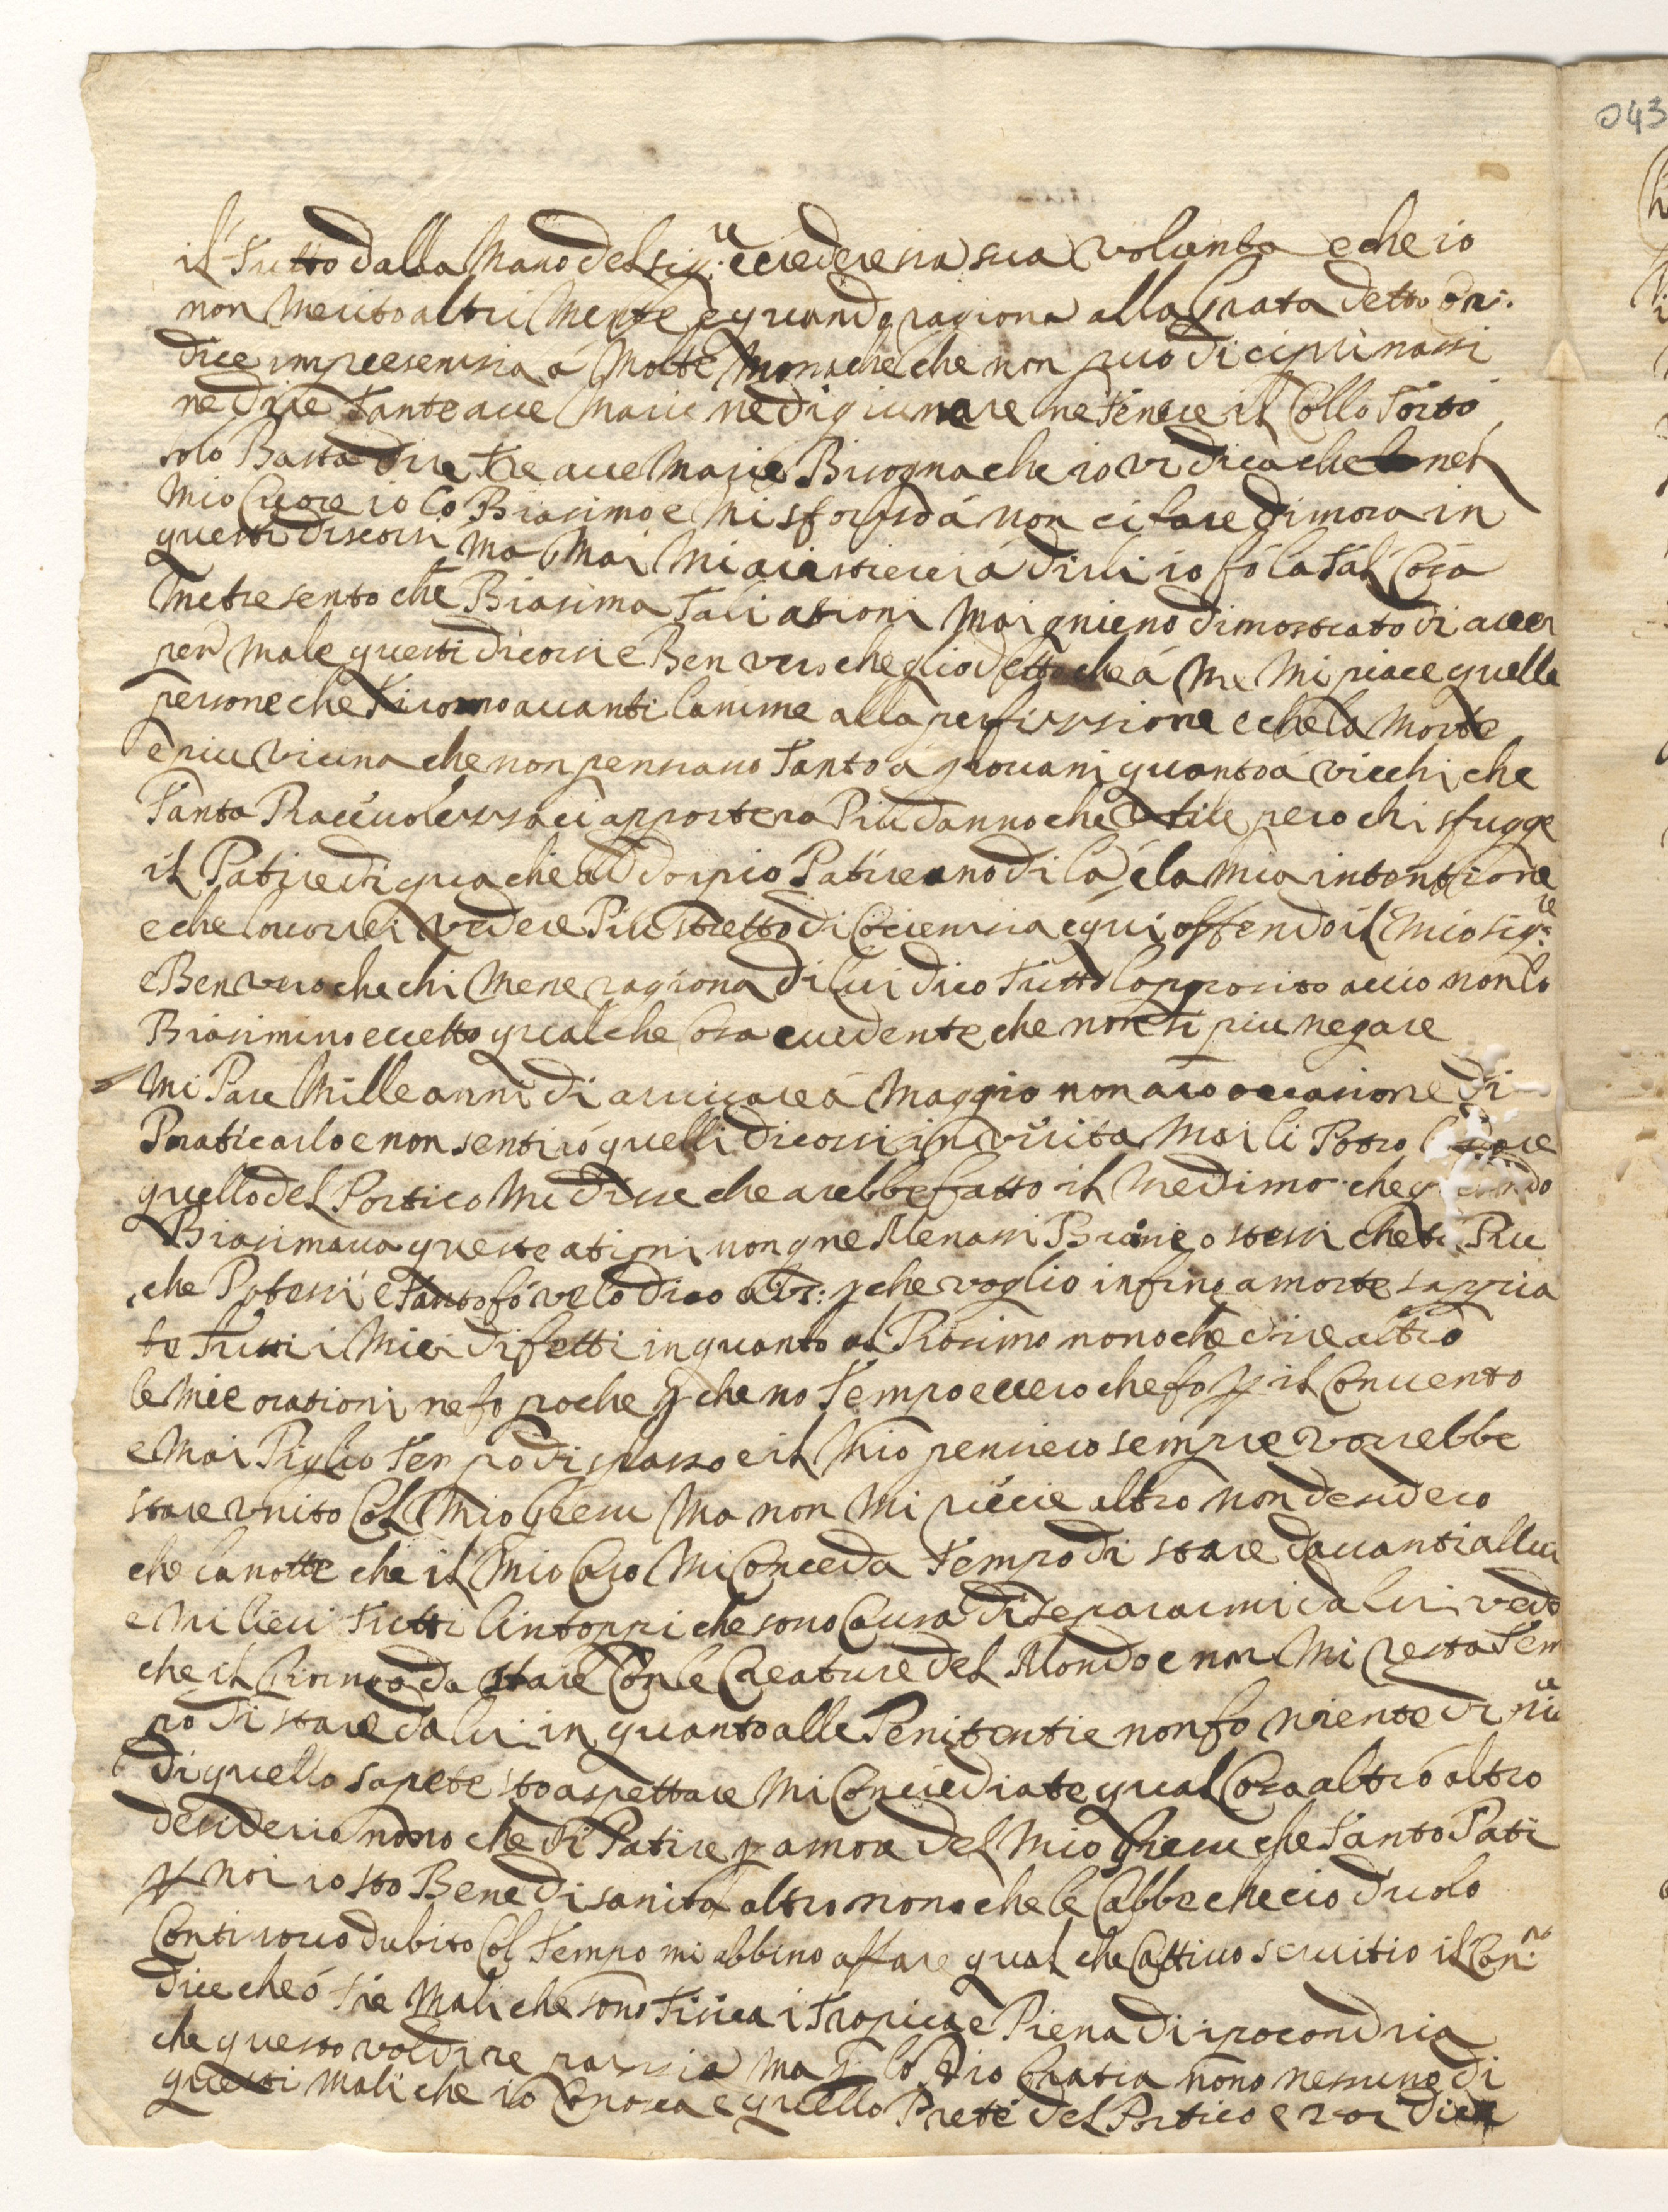 043
il Tutto dalla Mano del Sig:re e credere sia sua volunta e che io
non Merito altri Mente e quando ragiona alla Grata detto
dice impresensia á Molte Monache che non puo diciprinassi
ne dire Tante ave Marie ne digiunare ne Tenere il Collo Torto
solo Basta dire Tre ave Marie Bisogna che io vi dica che nel
Mio Cuore io lo Biasimo e Mi sforso á non ci fare dimora in
questi discorsi ma Mai Mi ariscierá dirli io fó la Tal Cosa
Metre sento che Biasima Tali ationi Mai gnieno dimostrato di aver
per Male questi dicorsi e Ben vero che gliò detto che á Me Mi piace quelle
persone che Tirono avanti lanime alla perfissione e che la Morte
e piu vicina che non pensiano Tanto á giovani quanto á viechi che
Tanta Piacevolessa ci apportera Piu danno che utile pero chi sfugge
il Patire di qua che al dorpio Patireano di la é la Mia intentione
e che lo vorrei vedere Piu stretto di Cociensia e qui offendo il Mio Sig:re
e Ben vero che chi Mene ragiona di lui dico Tutto lopprosito accio non lo
Biasimino eccetto qualche Cosa evedente che non si piu negare
Mi Pare Mille anni di arrivare á Maggio non aró occasione di
Praticarlo e non sentiró quelli dicorsi in visita Mai li Potro
quello del Portico Mi disse che arebbe fatto il Medimo che
Biasimava queste ationi non gne Menassi Buone o stessi cheta Piu
che Potessi e Tanto fó ve lo dico che voglio infino a morte sappia
te Tutti i Miei difetti in quanto al Prosimo nonó che dire altro
le Mie orationi ne fo poche che nó Tempo e vero che fo il Convento
e Mai Piglio Tempo di spasso e il Mio pensiero sempre vorrebbe
stare vnito Col Mio Giesu Ma non Mi riecie altro non desidero
che la notte che il Mio Caro Mi Conceda Tempo di stare davanti allui
e Mi lievi Tutti lintoppi che sono Causa di separarmi da lui vedo
che il Giorno da stare Con le Creature del Mondo e non Mi resta Tem
po di stare da lui in quanto alle Penitentie non fo niente di piu
di quello sapete sto aspettare Mi Conciediate qual Cosa altro altro
desiderio nono che di Patire p amor del Mio Giesu che Tanto Pati
p noi io sto Bene di sanita altro nono che le Gabbe che ció duolo
Continovo dubito Col Tempo mi abbino affare qual che Cattivo servitio il Con:
dice che ó Tre Mali che sono Tisica iTropica e Piena di ipocondria
che questo vol dire passia ma p lo Dio Gratia nono nessuno di
questi Mali che io Conosca e quello Prete del Portico e